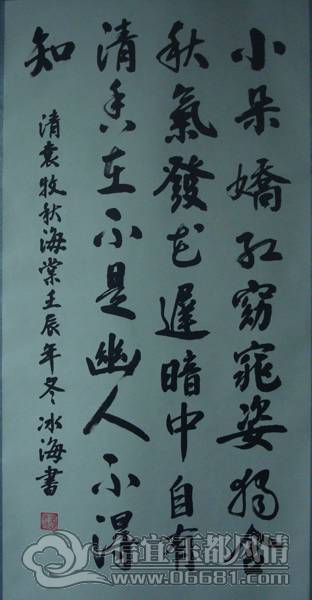 小朵嬌紅窈窕姿獨含
秋氣發花遲暗中自有
清香在不是幽人不得
知
清袁牧秋海棠壬辰年冬冰海書
信宜玉都风情
www.06681.com